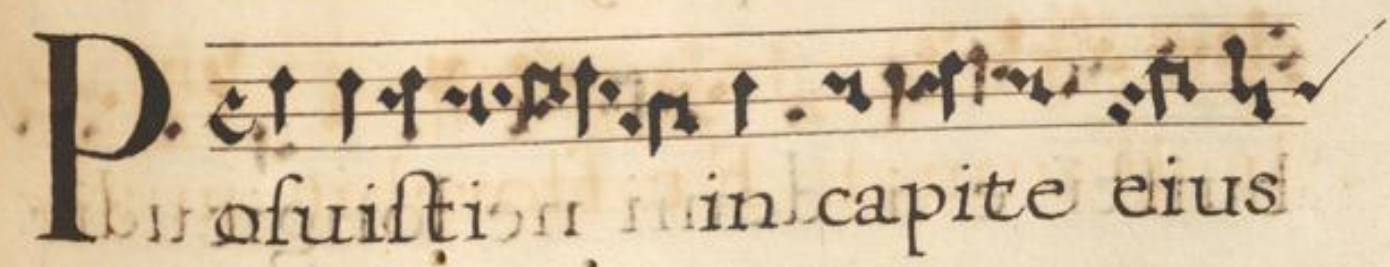 Poſuiſti in capite eius